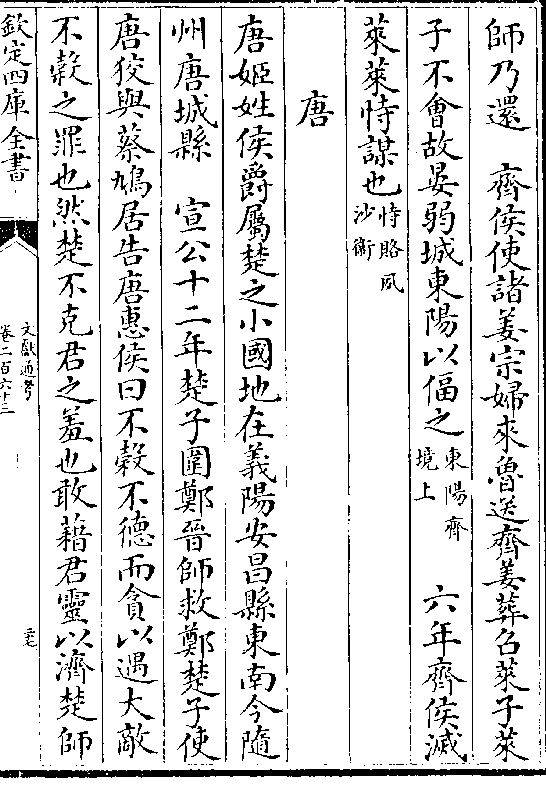 師乃還　齊侯使諸姜宗婦來魯送齊姜葬召萊子萊
子不會故晏弱城東陽以偪之東陽齊境上　六年齊侯滅
萊萊恃謀也恃賂夙沙衛
唐
唐姬姓侯爵屬楚之小國地在義陽安昌縣東南今隨
州唐城縣　宣公十二年楚子圍鄭晉師救鄭楚子使
唐狡與蔡鳩居告唐惠侯曰不穀不德而貪以遇大敵
不榖之罪也然楚不克君之羞也敢藉君靈以濟楚師
欽定四庫全書
文獻通考
卷二百六十三